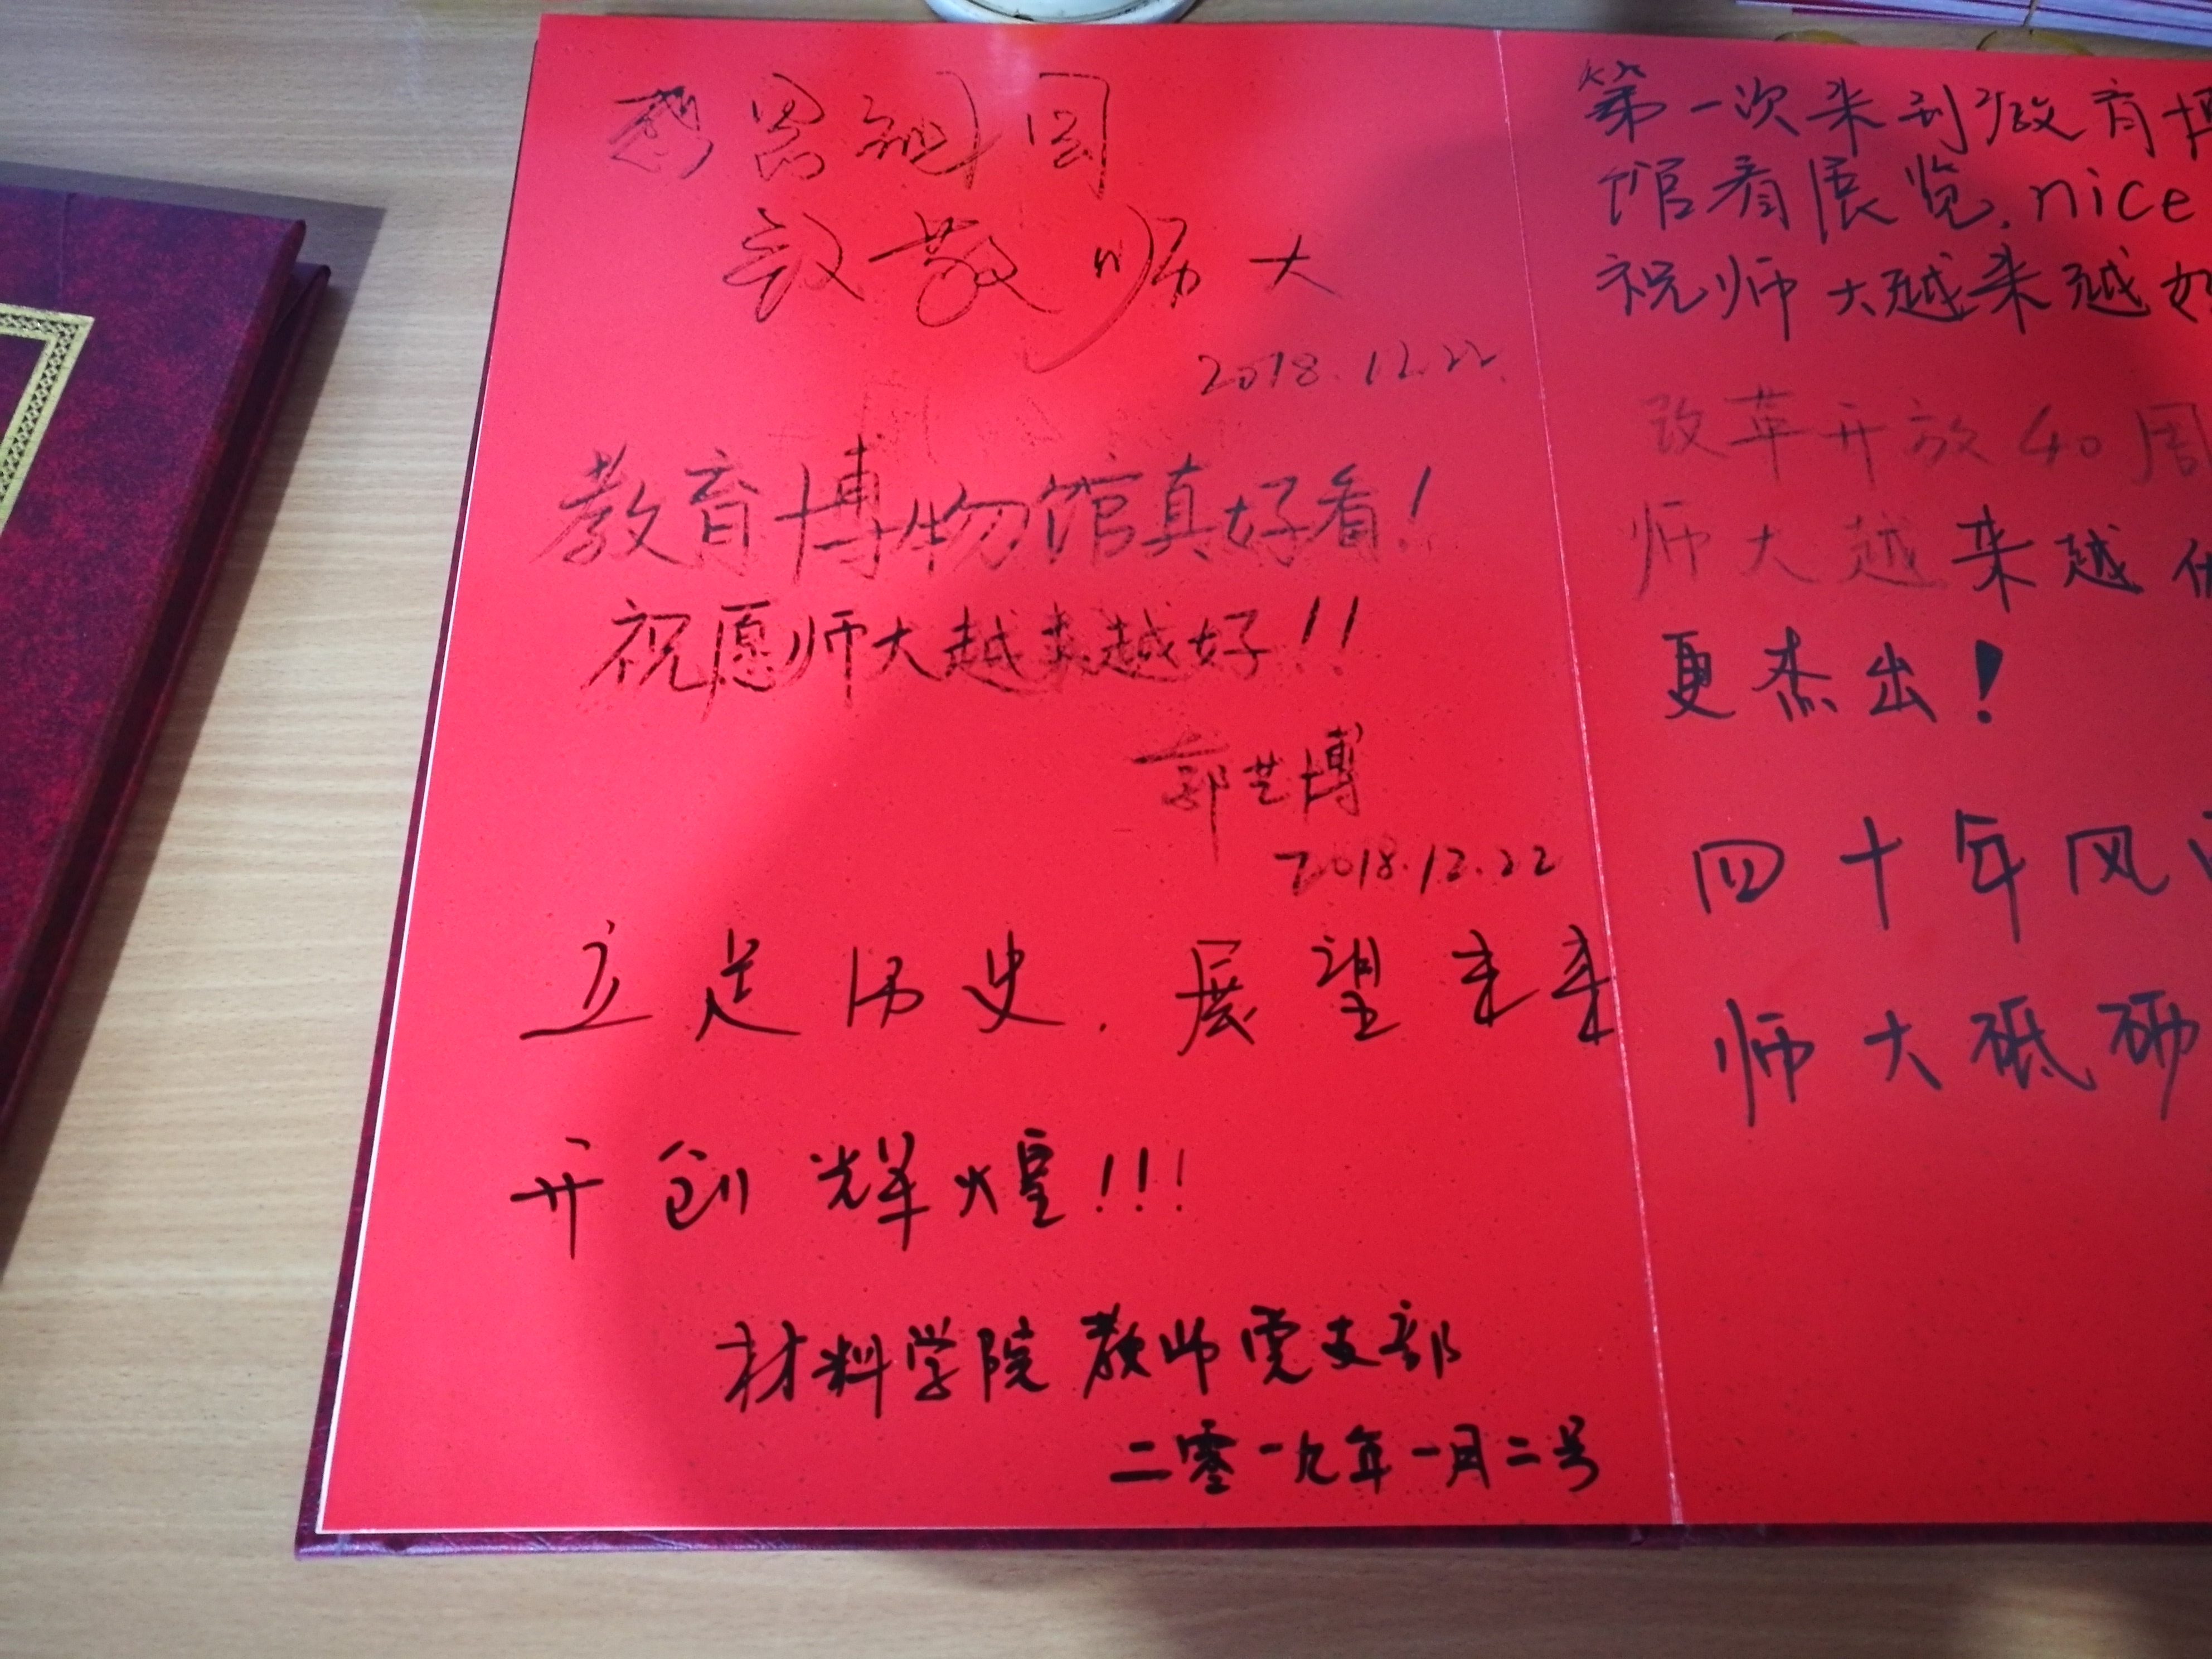 感恩祖国
致敬师大
2018.12.22.
教育博物馆真好看！
祝愿师大越来越好！！
郭艺博
2018.12.22
立足历史，展望未来
开创辉煌！！！
材料学院教师党支部
二零一九年一月二号
第一次来到教育博
馆看展览，nice
祝师大越来越好
改革开放40周
师大越来越优
更杰出！
四十年风雨
师大砥砺